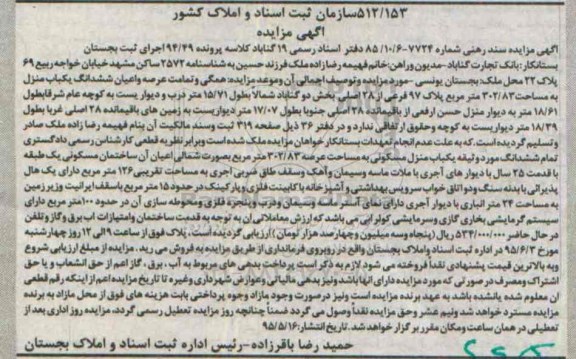 ۵۱۲/۱۵۳سازمان ثبت اسناد و املاک کشور
آگهی مزایده
آگهی مزایده سند رهنی شماره ۷۷۲۴-۸۵/۱۰/۶ دفتر اسناد رسمی ۱۹ گناباد کلاسه پرونده ۹۴/۴۹ اجرای ثبت بجستان
بستانکار: بانک تجارت گناباد -مدیون وراهن خانم فهیمه رضازاده ملک فرزند حسین به شناسنامه ۲۵۷۲ ساکن مشهد خیابان خواجه ربیع ۶۹
پلاک ۲۲ محل ملک: بجستان یونسی -مورد مزایده وتوصیف اجمالی آن وموعد مزایده: همگی وتمامت عرصه واعیان ششدانگ یکباب منزل
به مساحت ۳۰۲/۸۳ متر مربع پلاک ۹۷ فرعی از ۲۸ اصلی بخش دو گناباد شمالاً بطول ۱۵/۷۱ متر درب و دیوار یست به کوچه عام شرقاً بطول
۱۸/۶۱ متر به دیوار منزل حسن ارفعی از باقیمانده ۲۸ اصلی جنوبا بطول ۱۷/۰۷ متر دیواریست به زمین های باقیمانده ۲۸ اصلی غربا بطول
۱۸/۳۹ متر دیواریست به کوچه وحقوق ارتفاقی ندارد و در دفتر ۳۶ ذیل صفحه ۳۱۹ ثبت وسند مالکیت آن بنام فهیمه رضا زاده ملک صادر
و تسلیم گردیده است.که به علت عدم انجام تعهدات بستانکار خواهان مزایده ملک شده است وبرابر نظریه قطعی کارشناس رسمی دادگستری
تمام ششدانگ مورد وثیقه یکباب منزل مسکونی به مساحت عرصه ۳۰۲/۸۳ متر مربع بصورت شمالی اعیان آن ساختمان مسکونی یک طبقه
با قدمت ۲۵ سال با دیوار های آجری با ملات ماسه وسیمان وآهک وسقف طاق ضربی آجری به مساحت تقریبی ۱۲۶ متر مربع دارای یک هال
پذیرائی با بدنه سنگ ودو اتاق خواب سرویس بهداشتی و آشپزخانه با کابینت فلزی وپارکینک در حدود ۱۵ متر مربع باسقف ایرانیت وزیر زمین
به مساحت ۲۴ متر انباری با دیوار آجری دارای نمای آجر ماسه وسیمان ودرب وپنجره فلزی ومحوطه سازی آن در حدود ۱۰۰متر مربع دارای
سیستم گرمایشی بخاری گازی وسرمایشی کولر آبی می باشد که ارزش معاملاتی آن به توجه به قدمت ساختمان وامتیازات اب برق وگاز وتلفن
در حال حاضر ۵۳۴/۰۰۰/۰۰۰ ریال (پنجاه وسه میلیون وچهارصد هزار تومان ) ارزیابی گردیده است. پلاک فوق از ساعت ۹الی ۱۲ روز چهارشنبه
مورخ ۹۵/۶/۳ در اداره ثبت اسناد واملاک بجستان واقع در روبروی فرمانداری از طریق مزایده به فروش می رسد . مزایده از مبلغ ارزیابی شروع
وبه بالاترین قیمت پیشنهادی نقداً فروخته می شود لازم به ذکر است پرداخت بدهی های مربوط به آب ، برق ، گاز اعم از حق انشعاب و یا حق
اشتراک ومصرف در صورتی که مورد مزایده دارای آنها باشد ونیز بدهی مالیاتی وعوارض شهرداری وغیره تا تاریخ مزایده اعم از اینکه رقم قطعی
آن معلوم شده یانشده باشد به عهد برنده مزایده است ونیز درصورت وجود مازاد وجوه پرداختی بابت هزینه های فوق از محل مازاد به برنده
مزایده مسترد خواهد شد ونیم عشر وحق مزایده نقداً وصول می گردد ضمناً چنانچه روز مزایده تعطیل رسمی گردد، مزایده روز اداری بعد از
تعطیلی در همان ساعت ومکان مقرر بر گزار خواهد شد. تاریخ انتشار: ۹۵/۵/۱۶
حمید رضا باقرزاده-رئیس اداره ثبت اسناد و املاک بجستان